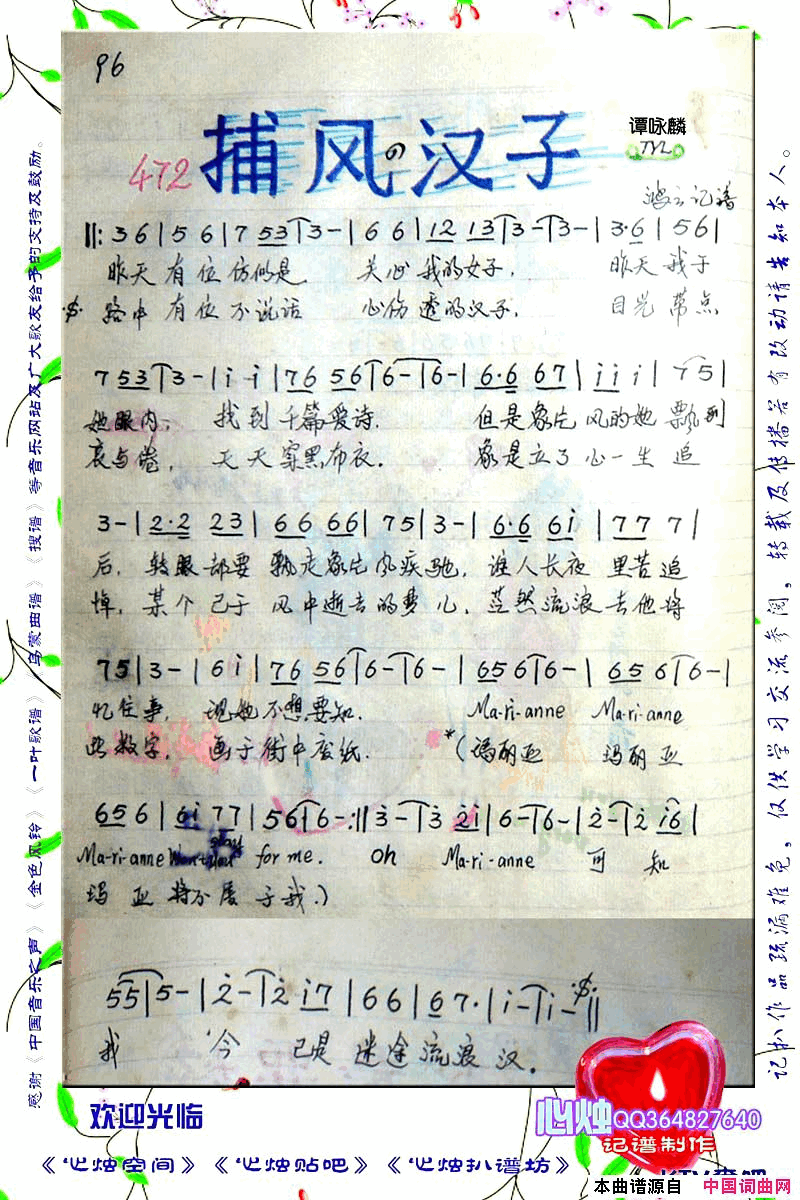 96
捕风の汉子
谭咏麟
TYL
472
鸿云记谱
‖: 3 6 | 5 6 | 7 53 | 3 - | 6 6 | 12 13 | 3 - | 3 - | 3·6 | 5 6 |
昨天 有位 仿似是 关心 我的女子. 昨天 我于
路中 有位 不说话 心伤 透的汉子. 目光 带点
7 53 | 3 - | i i | 76 56 | 6 - | 6 - | 6·6 67 | i i i | 7 5 |
她眼内, 找到 千篇爱诗. 但是象片 风的她 飘到
哀与倦, 天天 穿黑布衣. 象是立了 心一生 追
3 - | 2·2 23 | 66 66 | 7 5 | 3 - | 6·6 6i | 77 7 |
后, 转眼却要 飘走象片 风疾驰, 谁人长夜 里苦追
悼, 某个已于 风中逝去的梦儿, 茫然流浪 去他将
7 5 | 3 - | 6 i | 76 56 | 6 - | 6 - | 65 6 | 6 - | 65 6 | 6 - |
忆往事, 现她不想要知. Ma-ri-anne Ma-ri-anne
此数字, 画于街中废纸. *(玛丽亚 玛丽亚
65 6 | 6i 77 | 56 | 6 - :‖ 3 - | 3 2i | 6 - | 6 - | 2 - | 2 i6 |
Ma-ri-anne for me. Oh Ma-ri-anne 可 知
玛 亚 将不属于我.)
55 | 5 - | 2 - | 2 i7 | 6 6 | 6 7· | i - | i - ‖
我 今 已是 迷途 流浪 汉.
感谢《中国音乐之声》《金色风铃》《一叶歌谱》《乌蒙曲谱》《搜谱》等音乐网站及广大歌友给予的支持及鼓励。
记扒作品疏漏难免，仅供学习交流参阅，转载及传播若有改动请告知本人。
欢迎光临
心烛QQ364827640
记谱制作
《心烛空间》《心烛贴吧》《心烛扒谱坊》
本曲谱源自 中国词曲网